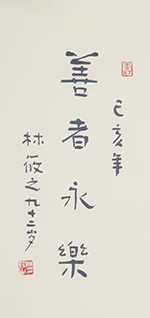 己亥年
善者永樂
林筱之九十二岁